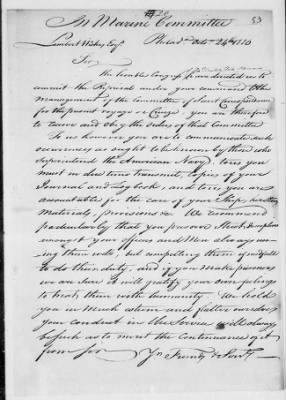 53
In Marine Committee
Lambert Wickes Esqr. Philada. Octr. 24th 1776
Sir
The honble Congress have directed us to
commit the Reprisal under your command & the
management of the Committee of Secret Correspondence
for the present voyage or Cruize, you are therefore
to receive and obey the orders of that Committee
To us however you are to communicate such
occurrences as ought to be known by those who
Superintend the American Navy, to us you
must in due time transmit, copies of your
Journal and Log book, and to us you are
accountable for the care of your Ship, her stores
Materials, provisions &c. We recommend
particularly that you preserve Strict discipline
amongst your officers and Men always
using them well, but compelling them
to do their duty, and if you make prisoners
we are sure it will gratify your own feelings
to treat them with humanity. We hold
you in much esteem and flatter ourselves
your conduct in this Service will always
be such as to merit the continuance of it
from Sir Yr. Friends & Servts